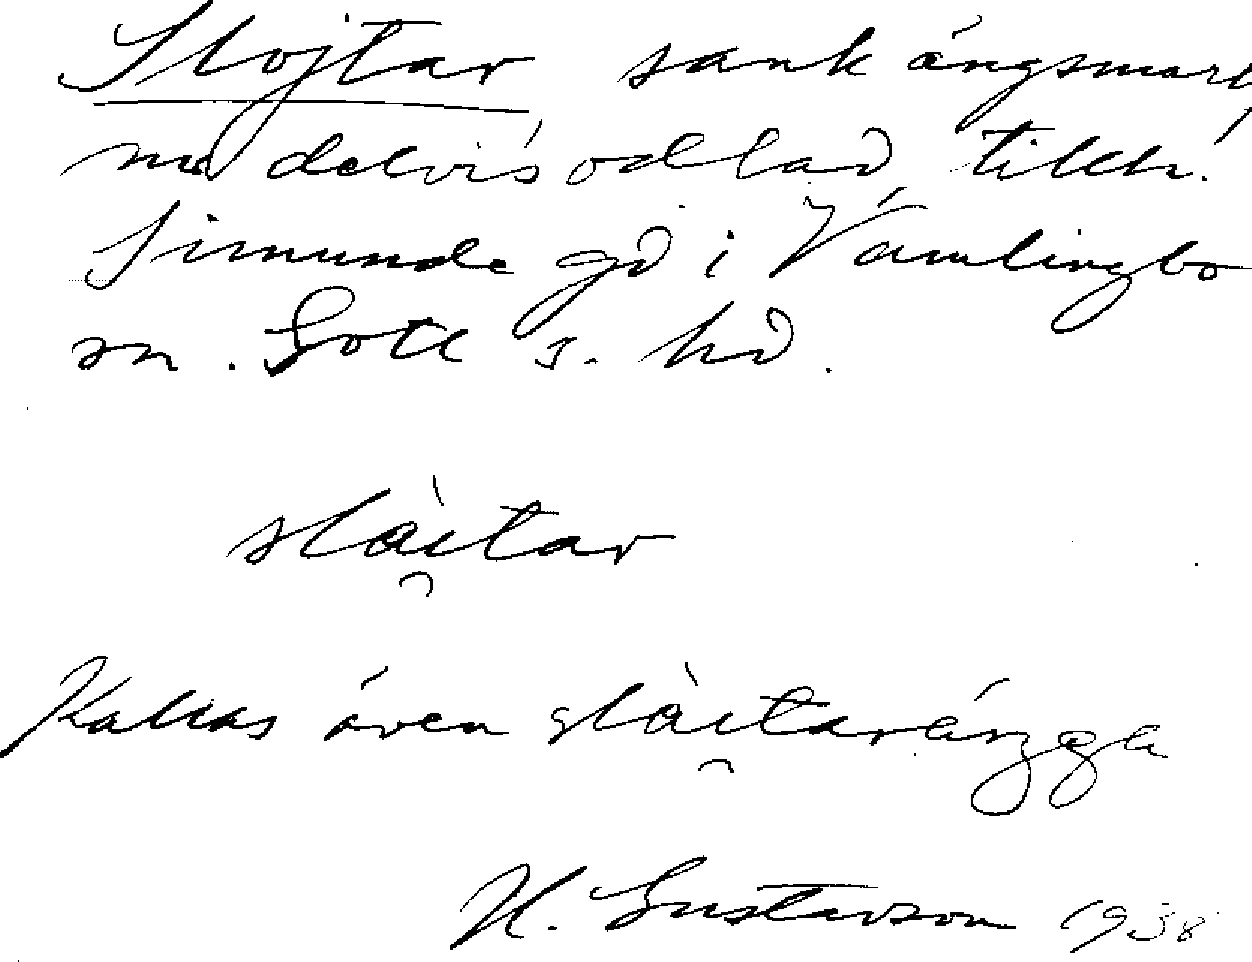 Slojtar sank ängsmark,
nu delvis odlad, tillh.
Simunde gd i Vamlingbo
sn. Gotl s. hd.
slàı̯tar
Kallas även slàı̯taräŋga
H. Gustavson 1938